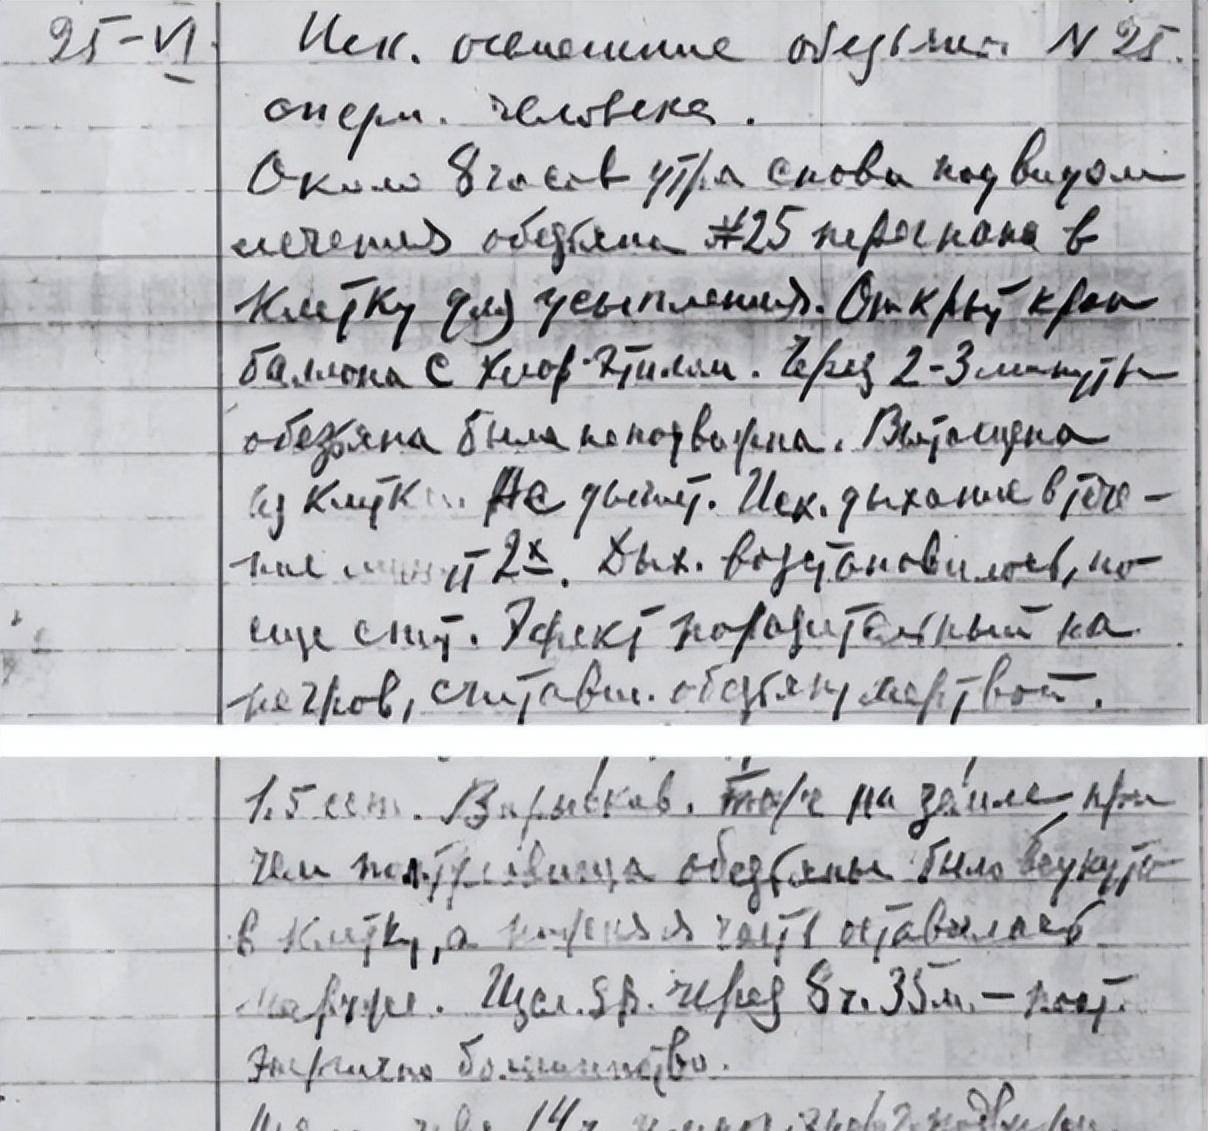 25-VI. Иск. осеменение обезьян. N 25.
сперм. человека.
Около 8 часов утра снова под видом
лечения обезьяна #25 перегнана в
клетку для усыпления. Открыт кран
баллона с хлор-этилом. Через 2-3 минуты
обезьяна была неподвижна. Вытащена
из клетки. Не дышит. Иск. дыхание в тече-
ние минут 2х. Дых. возстановилось, но
еще спит. Эфект поразительный на
негров, считавш. обезьяну мертвой.
1.5 сст. Впрыскив. на земле при
чем туловища обезьяны было
в клетку, а часть оставалась
наружи. через 8 ч. 35 м. –
энергично
14 ч